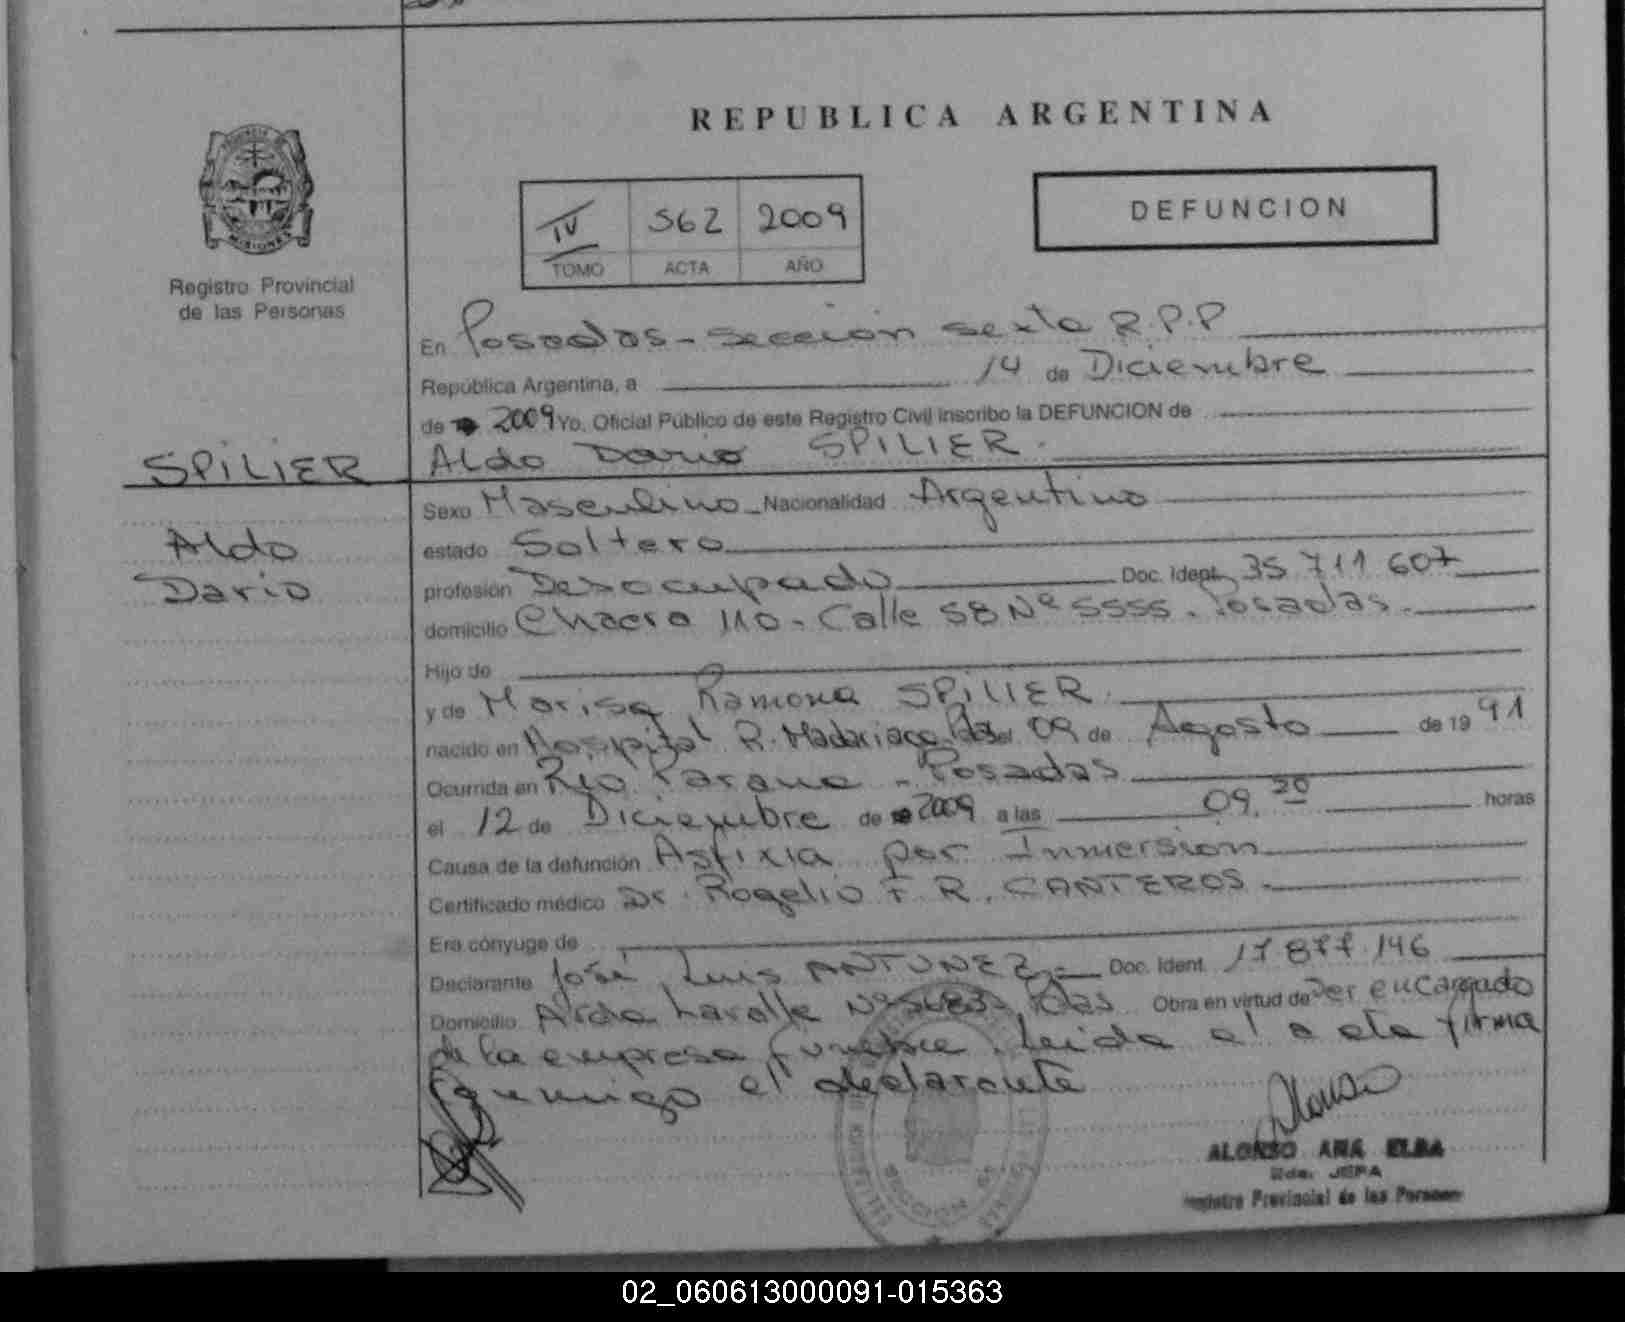 REPUBLICA ARGENTINA
IV 562 2009
TOMO ACTA AÑO
DEFUNCION
Registro Provincial
de las Personas
En Posadas - sección sexta R.P.P
República Argentina, a 14 de Diciembre
de 2009 Yo, Oficial Público de este Registro Civil inscribo la DEFUNCION de
SPILIER Aldo Dario SPILIER.
Aldo
Dario
Sexo Masculino Nacionalidad Argentino
estado Soltero
profesión Desocupado Doc. Ident. 35 711 607
domicilio Chacra 110 - Calle 58 Nº 5555. Posadas.
Hijo de
y de Marisa Ramona SPILIER.
nacido en Hospital R. Madariaga Pdas el 09 de Agosto de 1991
Ocurrida en Río Paraná - Posadas
el 12 de Diciembre de 2009 a las 09.20 horas
Causa de la defunción Asfixia por Inmersión
Certificado médico Dr. Rogelio F. R. CANTEROS.
Era cónyuge de
Declarante José Luis ANTUNEZ Doc. Ident. 17 877 146
Domicilio Avda. Lavalle Nº Pdas Obra en virtud de Ser encargado
de la empresa fúnebre. Leída el a cta firma
conmigo el declarante
Alonso
ALONSO ANA ELBA
Rda. JEFA
Registro Provincial de las Personas
02_060613000091-015363